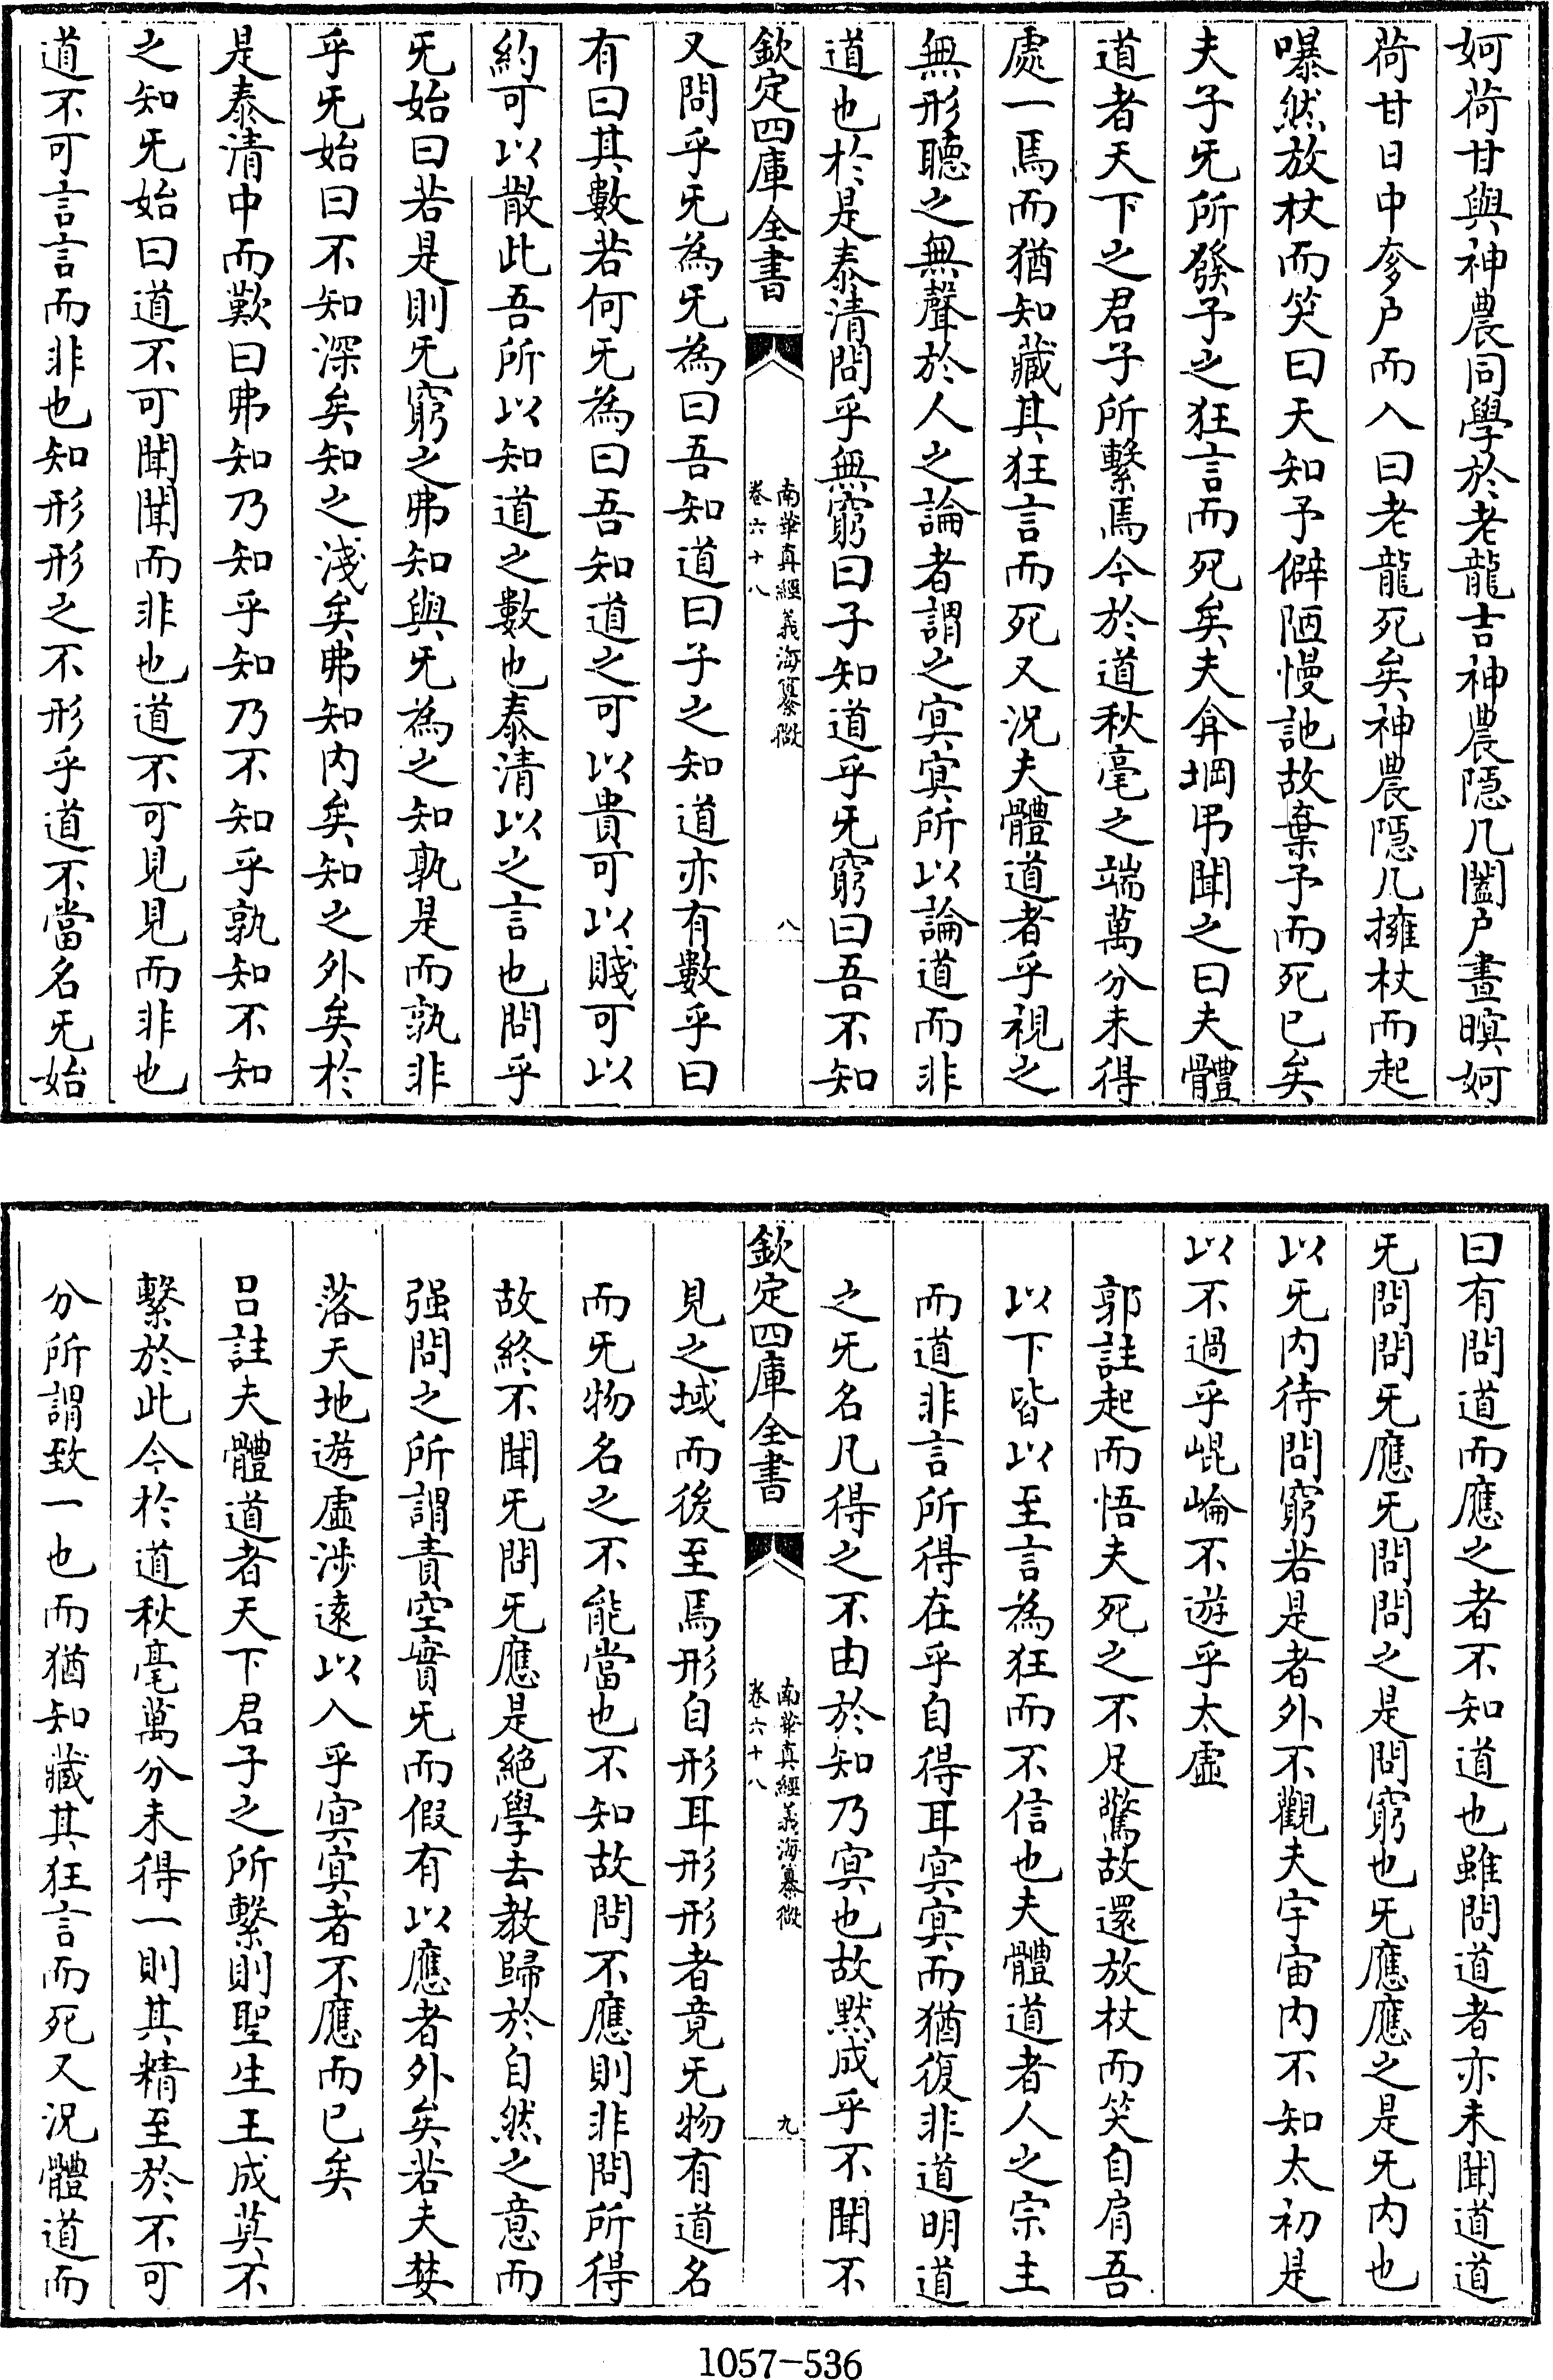 妸荷甘與神農同學於老龍吉神農隱几闔户晝瞑妸
荷甘日中奓户而入曰老龍死矣神農隱几擁杖而起
嚗然放杖而笑曰天知予僻陋慢訑故棄予而死已矣
夫子旡所發予之狂言而死矣夫弇堈弔聞之曰夫體
道者天下之君子所繫焉今於道秋毫之端萬分未得
處一焉而猶知藏其狂言而死又況夫體道者乎視之
無形聽之無聲於人之論者謂之冥冥所以論道而非
道也於是泰清問乎無窮曰子知道乎旡窮曰吾不知
欽定四庫全書
南華真經義海纂微
卷六十八
八
又問乎旡為旡為曰吾知道曰子之知道亦有數乎曰
有曰其數若何旡為曰吾知道之可以貴可以賤可以
約可以散此吾所以知道之數也泰清以之言也問乎
旡始曰若是則旡窮之弗知與旡為之知孰是而孰非
乎旡始曰不知深矣知之淺矣弗知内矣知之外矣於
是泰清中而歎曰弗知乃知乎知乃不知乎孰知不知
之知旡始曰道不可聞聞而非也道不可見見而非也
道不可言言而非也知形形之不形乎道不當名旡始
曰有問道而應之者不知道也雖問道者亦未聞道道
旡問問旡應旡問問之是問窮也旡應應之是旡内也
以旡内待問窮若是者外不觀夫宇宙内不知太初是
以不過乎崐崘不遊乎太虛
郭註起而悟夫死之不足驚故還放杖而笑自肩吾
以下皆以至言為狂而不信也夫體道者人之宗主
而道非言所得在乎自得耳冥冥而猶復非道明道
之旡名凡得之不由於知乃冥也故黙成乎不聞不
欽定四庫全書
南華真經義海纂微
卷六十八
九
見之域而後至焉形自形耳形形者竟旡物有道名
而旡物名之不能當也不知故問不應則非問所得
故終不聞旡問旡應是絶學去教歸於自然之意而
强問之所謂責空實旡而假有以應者外矣若夫婪
落天地遊虛涉遠以入乎冥冥者不應而已矣
吕註夫體道者天下君子之所繫則聖生王成莫不
繫於此今於道秋毫萬分未得一則其精至於不可
分所謂致一也而猶知藏其狂言而死又況體道而
1057-536